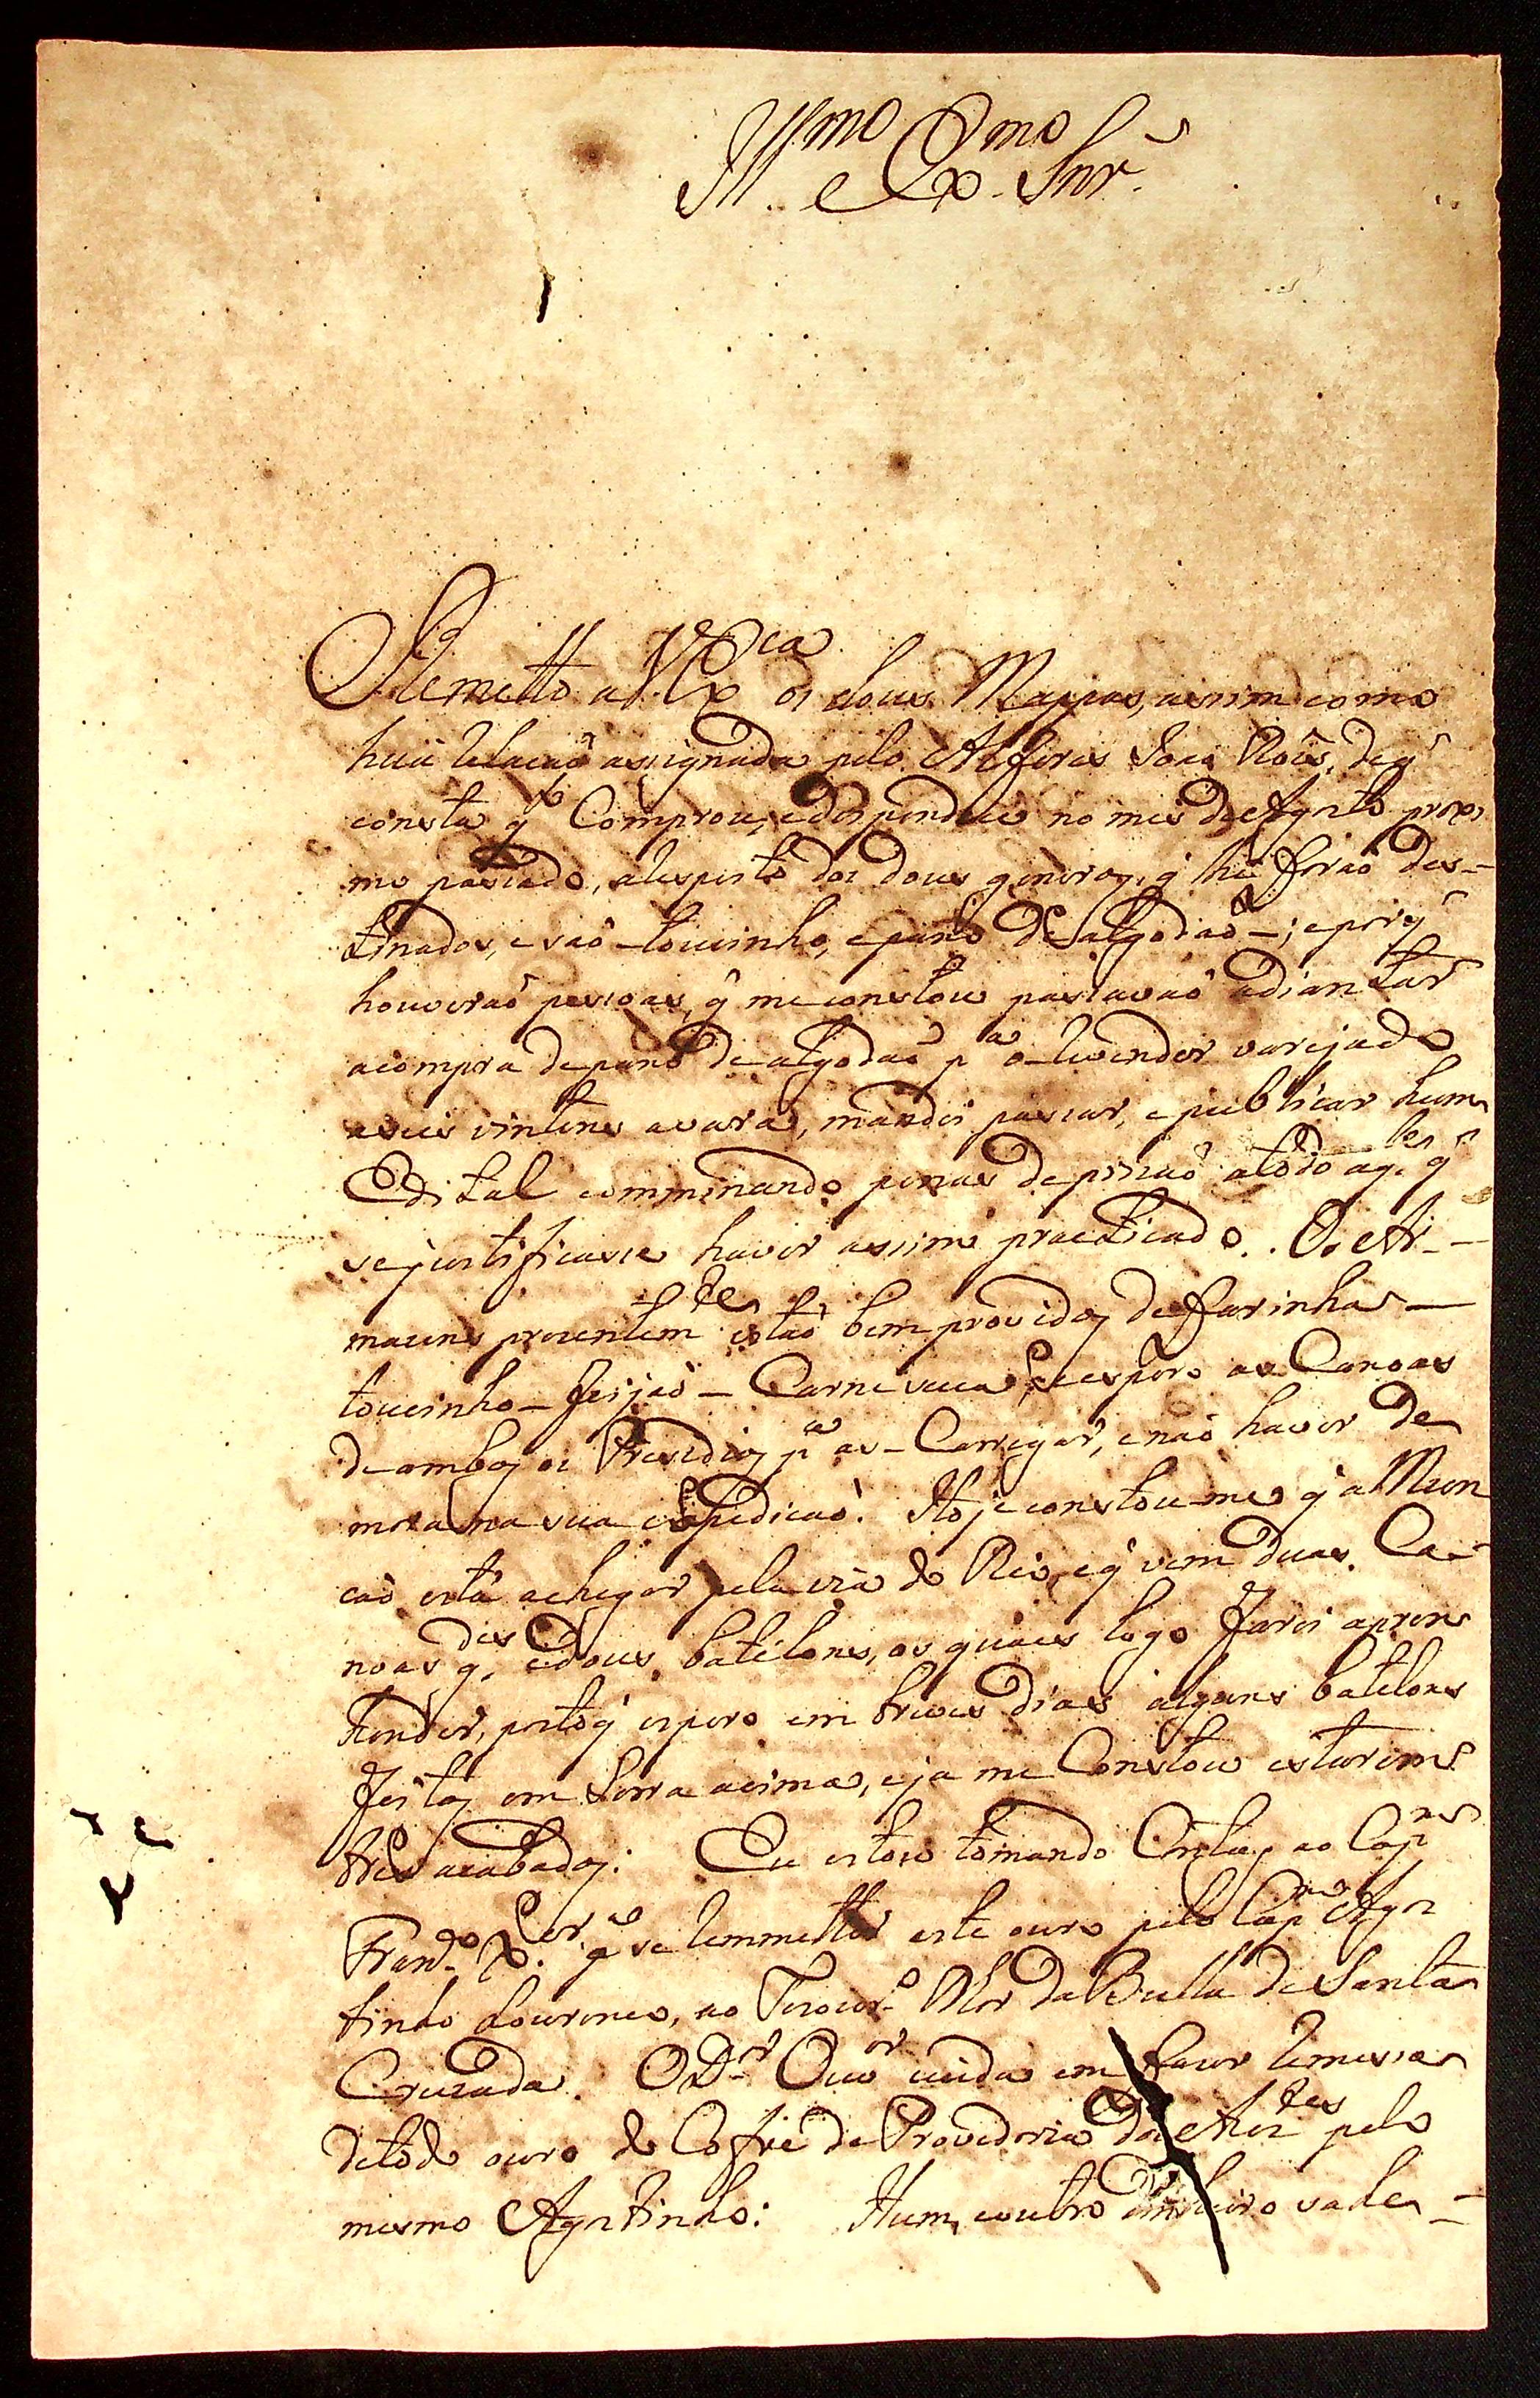 Ill.mo e Ex.mo Snr.
Remetto a V. Ex.ca os dous Mappas, assim como
huã relaçaõ assignada pelo Alferes Joaõ Roĩz, de q̃
consta q̃ Comprou, e dispendeu no mes de Agosto proxi
mo passado, a respeito dos dous generos, q̃ lhe foraõ des-
tinados, e saõ - toucinho, e pano de algodaõ -; e porq̃
houveraõ pessoas, q̃ me constou passavaõ adiantar
a compra de pano de algodaõ p.a o revender varejado
a seis vintens a vara, mandei passar, e publicar hum
Edital comminando penas de prizaõ a todo aq.les q̃
se justificasse haver assim practicado. Os Ar-
mazens prezentem.te estaõ bem providos de farinhas -
toucinho - feijaõ - Carne seca, e espero as Canoas
de ambos os Presidios p.a as - Carregar, e naõ haver de
mora na sua expediçaõ. Hoje constou-me q̃ a Mon
çaõ está a chegar pela via do Rio, e q̃ vem duas Ca-
noas g.des e dous batelons, os quaes logo farei apren
hender, posto q̃ espero em breves dias alguns batelons
feitos em Serra acima, e ja me Constou estarem
tres acabados: Eu estou tomando Contas ao Cap.m
Fran.co X.er p.a se remmetter este ouro pelo Cap.m Agos
tinho Lourenço, ao Tezour.o Mor da Bulla de Santa
Cruzada. O D.or Ouv.or cuida em fazer remessa
de todo ouro do Cofre da Provedoria dos Auz.tes pelo
mesmo Agostinho: Hum, e outro dinheiro sahe -